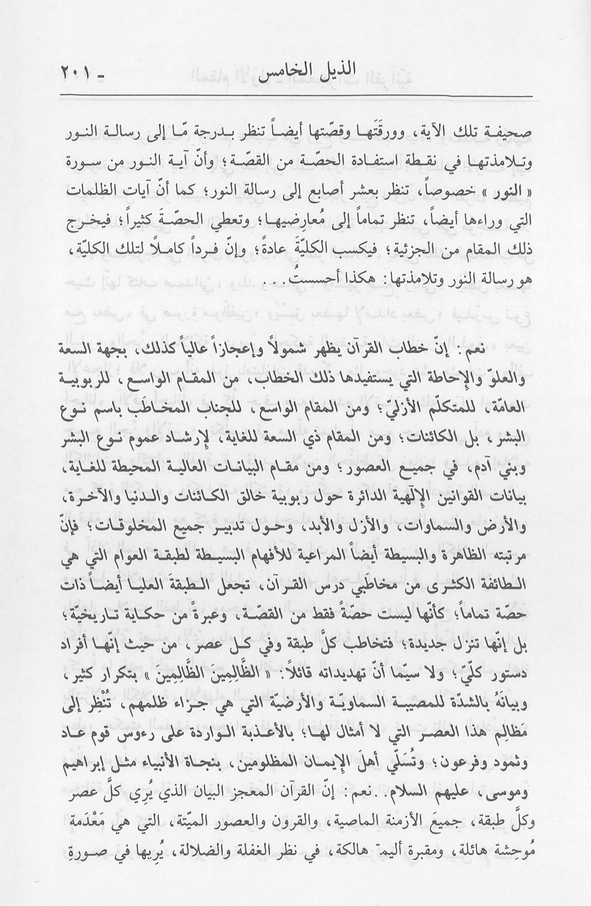 الذيل الخامس - ٢٠١
صحيفة تلك الآية، وورقَتَها وقصّتها أيضاً تنظر بدرجة مّا إلى رسالة النور
وتلامذتها في نقطة استفادة الحصّة من القصّة؛ وأنّ آية النور من سورة
« النور » خصوصاً، تنظر بعشر أصابع إلى رسالة النور؛ كما أنّ آيات الظلمات
التي وراءها أيضاً، تنظر تماماً إلى مُعارِضيها؛ وتعطي الحصّةَ كثيراً؛ فيخرج
ذلك المقام من الجزئية؛ فيكسب الكليّةَ عادةً؛ وإنّ فرداً كاملًا لتلك الكليّة،
هو رسالة النور وتلامذتها: هكذا أحسستُ...
نعم: إنّ خطاب القرآن يظهر شمولًا وإعجازاً عالياً كذلك، بجهة السعة
والعلوّ والإحاطة التي يستفيدها ذلك الخطاب، من المقام الواسع، للربوبية
العامّة، للمتكلّم الأزليّ؛ ومن المقام الواسع، للجناب المخاطَب باسم نوع
البشر، بل الكائنات؛ ومن المقام ذي السعة للغاية، لإرشاد عموم نوع البشر
وبني آدم، في جميع العصور؛ ومن مقام البيانات العالية المحيطة للغاية،
بيانات القوانين الإلٓهية الدائرة حول ربوبية خالق الكائنات والدنيا والآخرة،
والأرض والسماوات، والأزل والأبد، وحول تدبير جميع المخلوقات؛ فإنّ
مرتبته الظاهرة والبسيطة أيضاً المراعية للأفهام البسيطة لطبقة العوام التي هي
الطائفة الكثرى من مخاطَبي درس القرآن، تجعل الطبقةَ العليا أيضاً ذات
حصّة تماماً؛ كأنّها ليست حصّةً فقط من القصّة، وعبرةً من حكاية تاريخيّة؛
بل إنّها تنزل جديدة؛ فتخاطب كلَّ طبقة وفي كل عصر، من حيث إنّها أفراد
دستور كلّيّ؛ ولا سيّما أنّ تهديداته قائلاً: « الظَّالِمِينَ الظَّالِمِينَ » بتكرار كثير،
وبيانَهُ بالشدّة للمصيبة السماويّة والأرضيّة التي هي جزاء ظلمهم، تُنْظِر إلى
مَظالِم هذا العصر التي لا أمثال لها؛ بالأعذبة الواردة على رءوس قوم عاد
وثمود وفرعون؛ وتُسَلّي أهلَ الإيمان المظلومين، بنجاة الأنبياء مثل إبراهيم
وموسى، عليهم السلام..نعم: إنّ القرآن المعجز البيان الذي يُرِي كلَّ عصر
وكلَّ طبقة، جميعَ الأزمنة الماضية، والقرون والعصور الميّتة، التي هي مَعْدَمة
مُوحِشة هائلة، ومقبرة أليمة هالكة، في نظر الغفلة والضلالة، يُرِيها في صورةِ